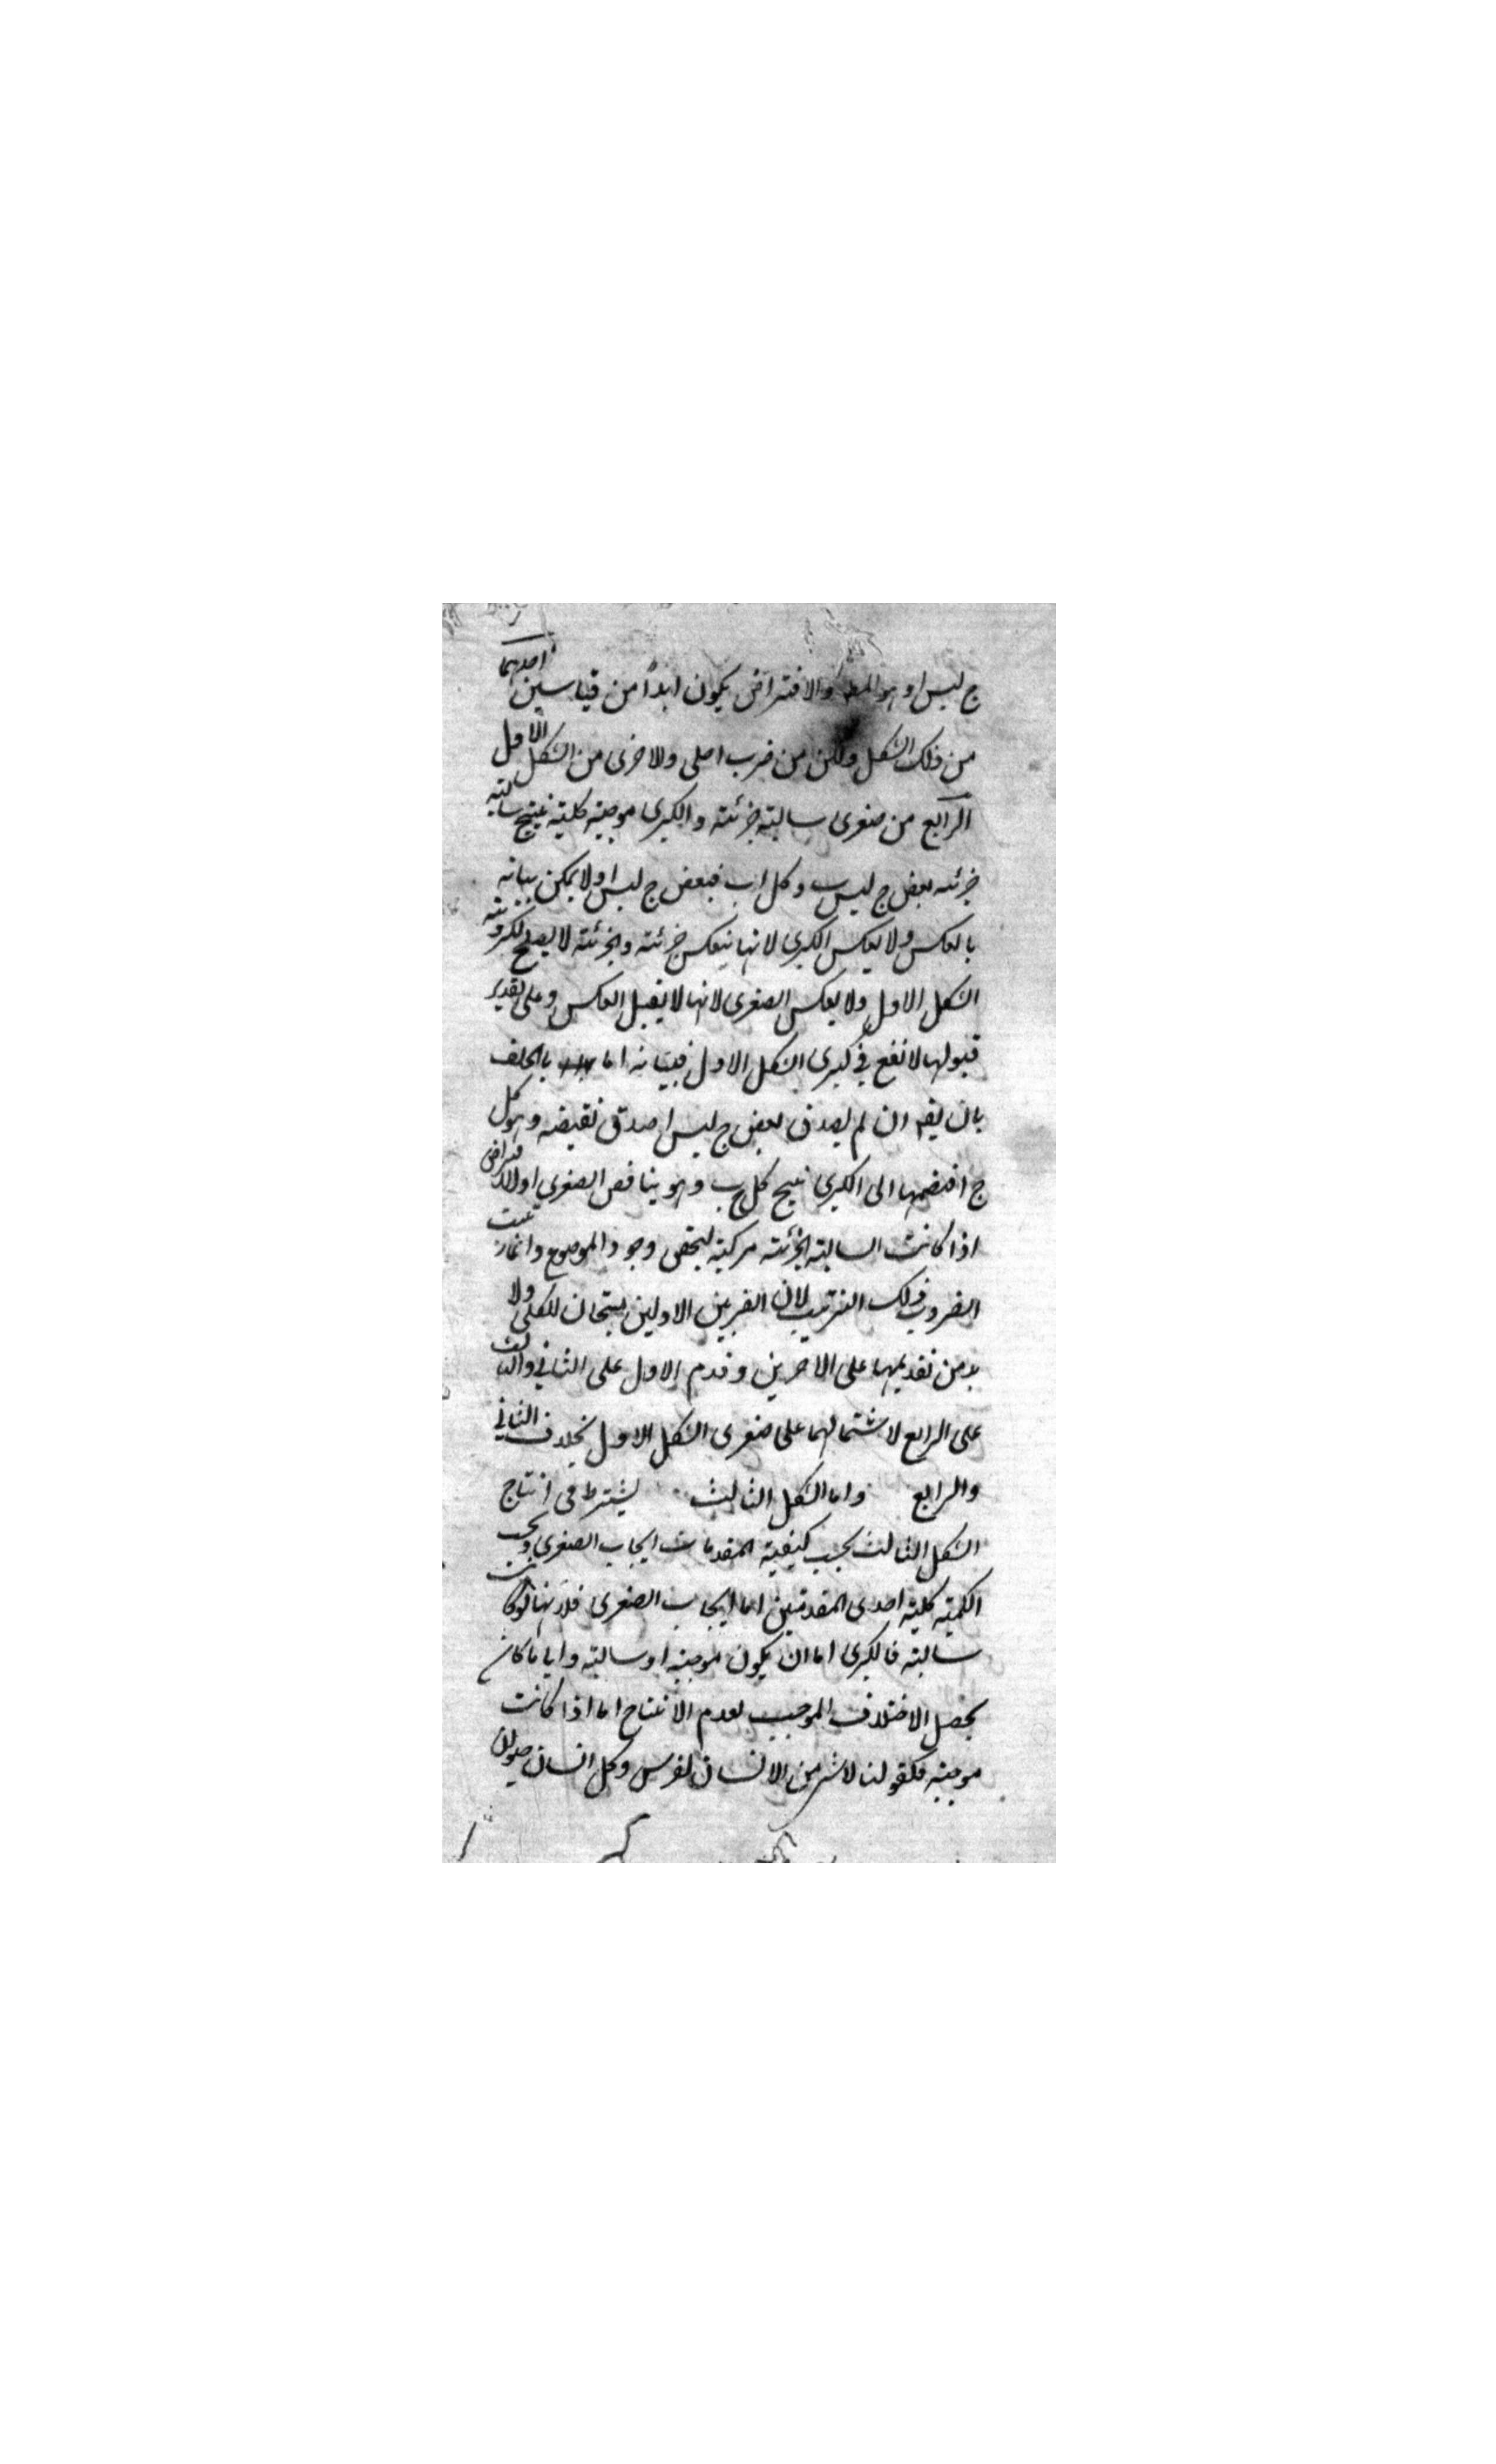 ج ليس ا وهو المط والافتراض يكون ابدًا من قياسين احدهما
من ذلك الشكل ولكن من ضرب اصلى والاخرى من الشكل الاول
الرابع من صغرى سالبة جزئية والكبرى موجبة كلية ينتج سالبة
جزئية بعض ج ليس ب وكل ا ب فبعض ج ليس ا ولا يمكن بيانه
بالعكس ولا بعكس الكبرى لانها تنعكس جزئية والجزئية لا يصلح لكبروية
الشكل الاول ولا بعكس الصغرى لانها لا تقبل العكس وعلى تقدير
قبولها لا تقع في كبرى الشكل الاول فبيانه اما بالخلف
بان يقم ان لم يصدق بعض ج ليس ا صدق نقيضه وهو كل
ج ا فنضمها الى الكبرى ينتج كل ج ب وهو يناقض الصغرى او الافتراض
اذا كانت السالبة الجزئية مركبة ليتحقق وجود الموضوع وانما رتبت
الضروب ذلك الترتيب لان الضربين الاولين ينتجان للكلى ولا
بد من تقديمها على الاخرين وقدم الاول على الثاني والثالث
على الرابع لاشتمالهما على صغرى الشكل الاول بخلاف الثاني
والرابع واما الشكل الثالث يشترط فى انتاج
الشكل الثالث بحسب كيفية المقدمات ايجاب الصغرى وبحسب
الكمية كلية احدى المقدمتين اما ايجاب الصغرى فلانها لو كانت
سالبة فالكبرى اما ان يكون موجبة او سالبة وايا ما كان
يحصل الاختلاف الموجب لعدم الانتاج اما اذا كانت
موجبة فكقولنا لا شئ من الانسان بفرس وكل انسان حيوان